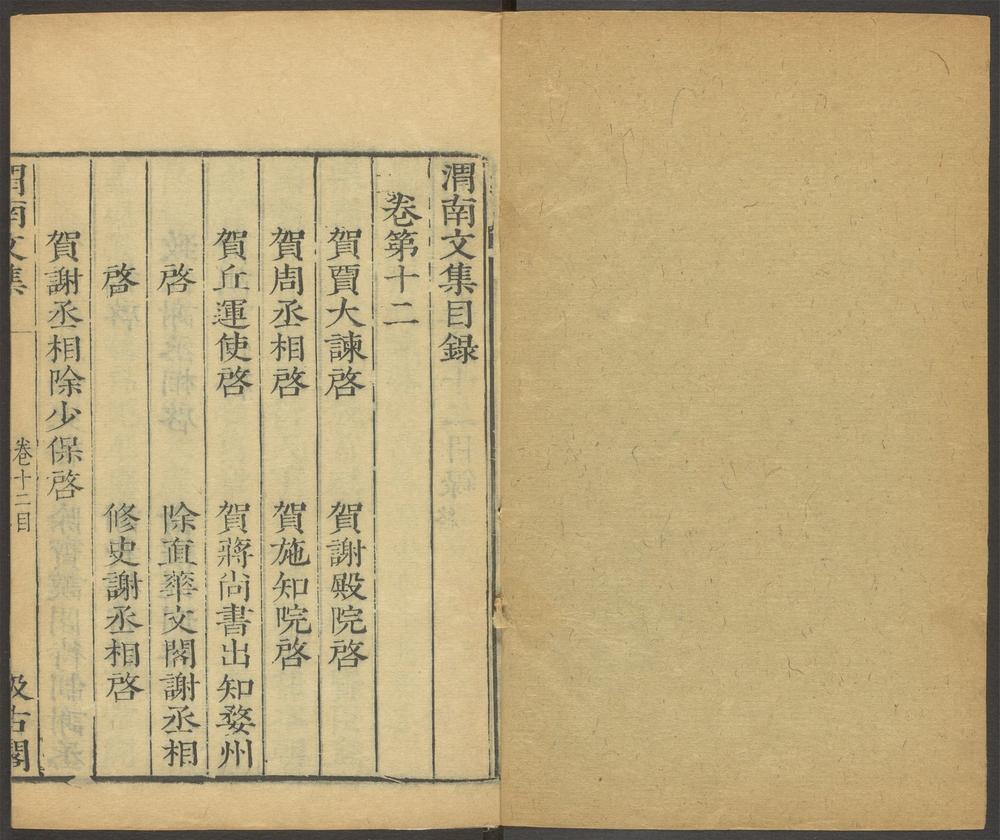 渭南文集目錄
卷第十二
賀賈大諫啓 賀謝殿院啓
賀周丞相啓 賀施知院啓
賀丘運使啓 賀蔣尚書出知婺州
啓 除直華文閣謝丞相
啓 修史謝丞相啓
賀謝丞相除少保啓
渭南文集 卷十二目 汲古閣